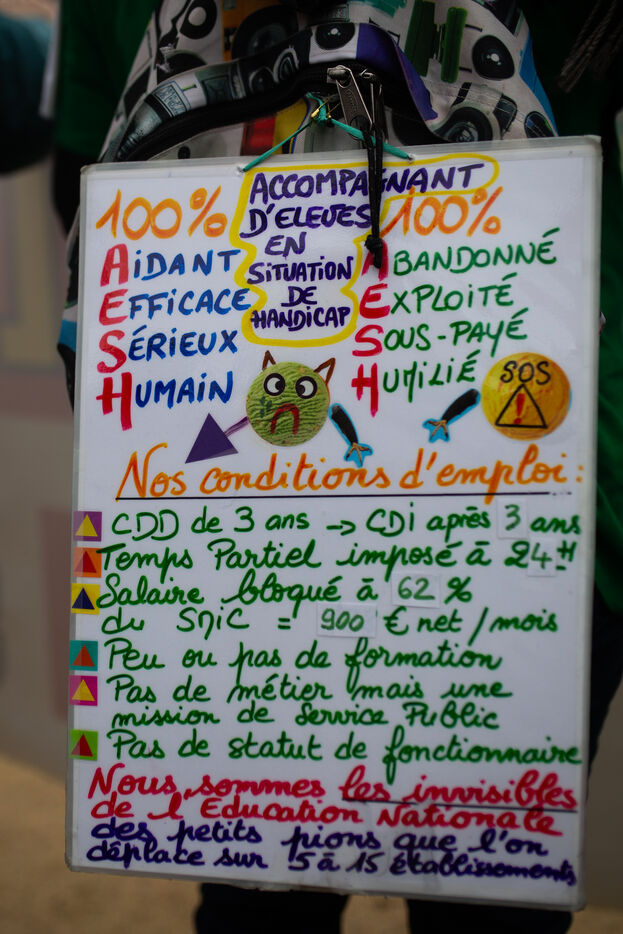 ACCOMPAGNANT
D'ELEVES
EN
SITUATION
DE
HANDICAP
100%
AIDANT
EFFICACE
SÉRIEUX
HUMAIN
100%
ABANDONNÉ
EXPLOITÉ
SOUS-PAYÉ
HUMILIÉ
SOS
!
Nos conditions d'emploi :
CDD de 3 ans → CDi après 3 ans
Temps Partiel imposé à 24H
Salaire bloqué à 62 %
du SMiC = 900 € net / mois
Peu ou pas de formation
Pas de métier mais une
mission de Service Public
Pas de statut de fonctionnaire
Nous sommes les invisibles
de l'Education Nationale
des petits pions que l'on
déplace sur 5 à 15 établissements